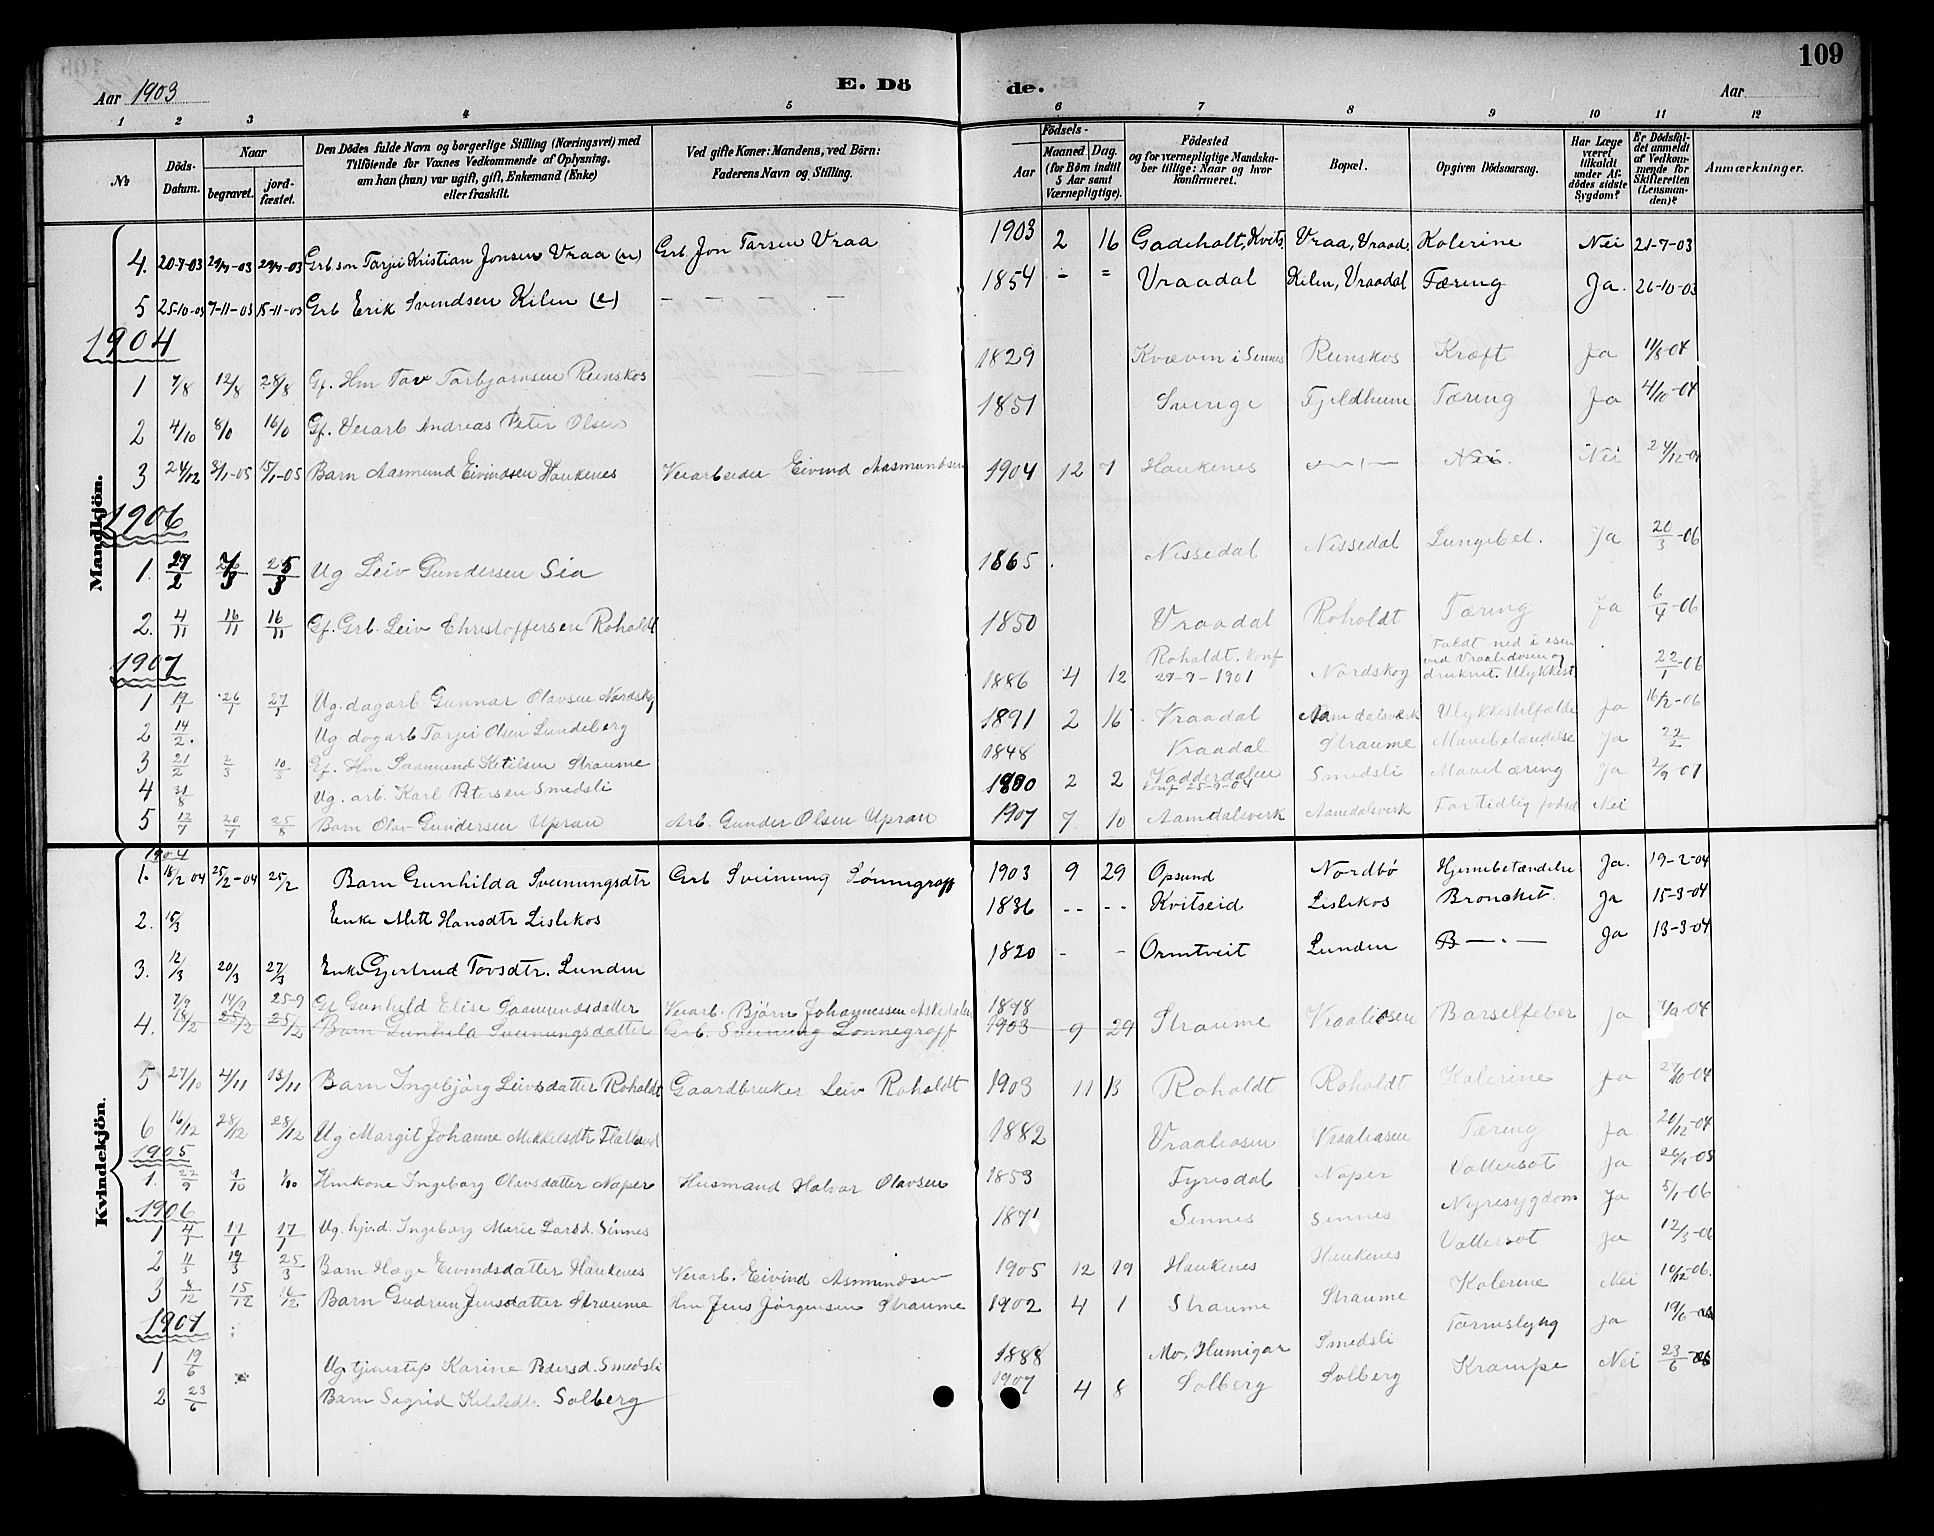 109
Aar 1903
E. Dö
de.
Aar
1 2 3 4 5 6 7 8 9 10 11 12
№
Döds-Datum.
Naar
begravet.
jord-fæstet.
Den Dödes fulde Navn og borgerlige Stilling (Næringsvei) med
Tilföiende for Voxnes Vedkommende af Oplysning,
om han (hun) var ugift, gift, Enkemand (Enke)
eller fraskilt.
Ved gifte Koner: Mandens, ved Börn:
Faderens Navn og Stilling.
Födsels-
Aar
Maaned. Dag.
(for Börn indtil
5 Aar samt
Værnepligtige).
Födested
og for værnepligtige Mandska-
ber tillige: Naar og hvor
konfirmeret.
Bopæl.
Opgiven Dödsaarsag.
Har Læge
været
tilkaldt
under Af-
dödes sidste
Sygdom?
Er Dödsfal-
det anmeldt
af Vedkom-
mende for
Skifteretten
(Lensman-
den)?
Anmærkninger.
Mandkjön.
4. 20-7-03 29/7-03 29/7-03 Grb son Tarjei Kristian Jonsen Vraa (u) Grb Jon Tarsen Vraa 1903 2 16 Gadeholt, Kvits. Vraa, Vraad. Kolerine Nei 21-7-03
5 25-10-03 7-11-03 15-11-03 Grb Erik Svendsen Kilen (e) - - - - 1854 - = Vraadal Kilen, Vraadal Tæring Ja. 26-10-03
1904
1 7/8 12/8 28/8 Gf. Hm Tov Torbjørnsen Reinskos 1829 Kvævin i Sennes Reinskos Kræft Ja 11/8-04
2 4/10 8/0 16/0 Gf. Veiarb Andreas Peter Olsen 1851 Sverige Fjeldheim Tæring Ja 4/10-04
3 24/12 3/1-05 15/1-05 Barn Aasmund Eivindsen Haukenes Veiarbeider Eivind Aasmundsen 1904 12 7 Haukenes -"- Nei. Nei 24/12-04
1906
1. 27/2 7/3 25/3 Ug Leiv Gundersen Sia 1865 Nissedal Nissedal Lungebet. Ja 20/3-06
2. 4/11 16/11 16/11 Gf. Grb. Leiv Christoffersen Roholdt 1850 Vraadal Roholdt Tæring Ja 6/4-06
1907
1 19/1 26/1 27/1 Ug. dagarb Gunnar Olavsen Nordskog 1886 4 12 Roholdt. Konf 29-9-1901 Nordskog Faldt ned i isen ved Vraaliosen og druknet. Ulykkest 22/1-06
2 14/2. Ug dagarb Tarjei Olsen Lundeberg 1891 2 16 Vraadal Aamdalsverk Ulykkestilfælde Ja 16/2-06
3 21/2 2/3 10/3 Gf. Hm Saamund Ketilsen Straume 1848 Vraadal Straume Mavebetændelse Ja 22/2
4 31/8 Ug. arb. Karl Petersen Smedsli 1890 2 2 Vadderdalen Konf 25-9-04 Smedsli Mavetæring Ja 2/9 07
5 12/7 20/7 25/8 Barn Olav Gundersen Upran Arb. Gunder Olsen Upran 1907 7 10 Aamdalsverk Aamdalsverk For tidlig födsel Nei
Kvindekjön.
1904
1. 18/2 04 25/2-04 25/2 Barn Gunhilda Sveinungsdtr Grb Sveinung Lönnegraff 1903 9 29 Opsund Nordbö Hjernebetændelse Ja. 19-2-04
2. 15/3 Enke Mett Hansdtr Lislekos 1836 -- -- Kvitseid Lislekos Bronchit Ja 15-3-04
3. 12/3 20/3 27/3 Enke Gjertrud Tovsdtr. Lunden 1820 - - Ormtveit Lunden B-"- Ja 13-3-04
7/9 14/9 25-9 Gf Gunhild Elise Saamundsdatter Veiarb. Björn Johannessen Askedalen 1878
4. 18/2 25/2 25/2 Barn Gunhila Sveinungsdatter Grb. Sveinung Lønnegraff 1903 9 29 Straume Vraaliosen Barselfeber Ja 7/9-04
5 27/10 4/11 13/11 Barn Ingebjörg Leivsdatter Roholdt Gaardbruker Leiv Roholdt 1903 11 13 Roholdt Roholdt Kolerine Ja 27/10-04
6 16/12 28/12 28/12 Ug Margit Johanne Mikkelsdtr Flatland 1882 Vraaliosen Vraaliosen Tæring Ja 20/12-04
1905
1. 22/9 1/10 1/10 Hmkone Ingeborg Olavsdatter Naper Husmand Halvor Olavsen 1853 Fyresdal Naper Vattersot Ja 26/9-05
1906
1 4/1 11/1 17/1 Ug. hjivd. Ingeborg Marie Larsd. Sinnes 1871 Sinnes Sinnes Nyresygdom Ja 5/1-06
2 11/3 19/3 25/3 Barn Hæge Eivindsdatter Haukenes Veiarb. Eivind Asmundsen 1905 12 19 Haukenes Haukenes Vattersot Ja 12/3-06
3 8/12 15/12 16/12 Barn Gudrun Jensdatter Straume Hm Jens Jörgensen Straume 1902 4 1 Straume Straume Kolerine Nei 10/12-06.
1907
1 19/6 Ug tjenestep Karine Pedersd. Smedsli 1888 Mo, Humigar Smedsli Tarmslyng Ja 19/6-
2 23/6 Barn Sigrid Kitilsdtr. Solberg 1907 4 8 Solberg Solberg Krampe Nei 23/6-